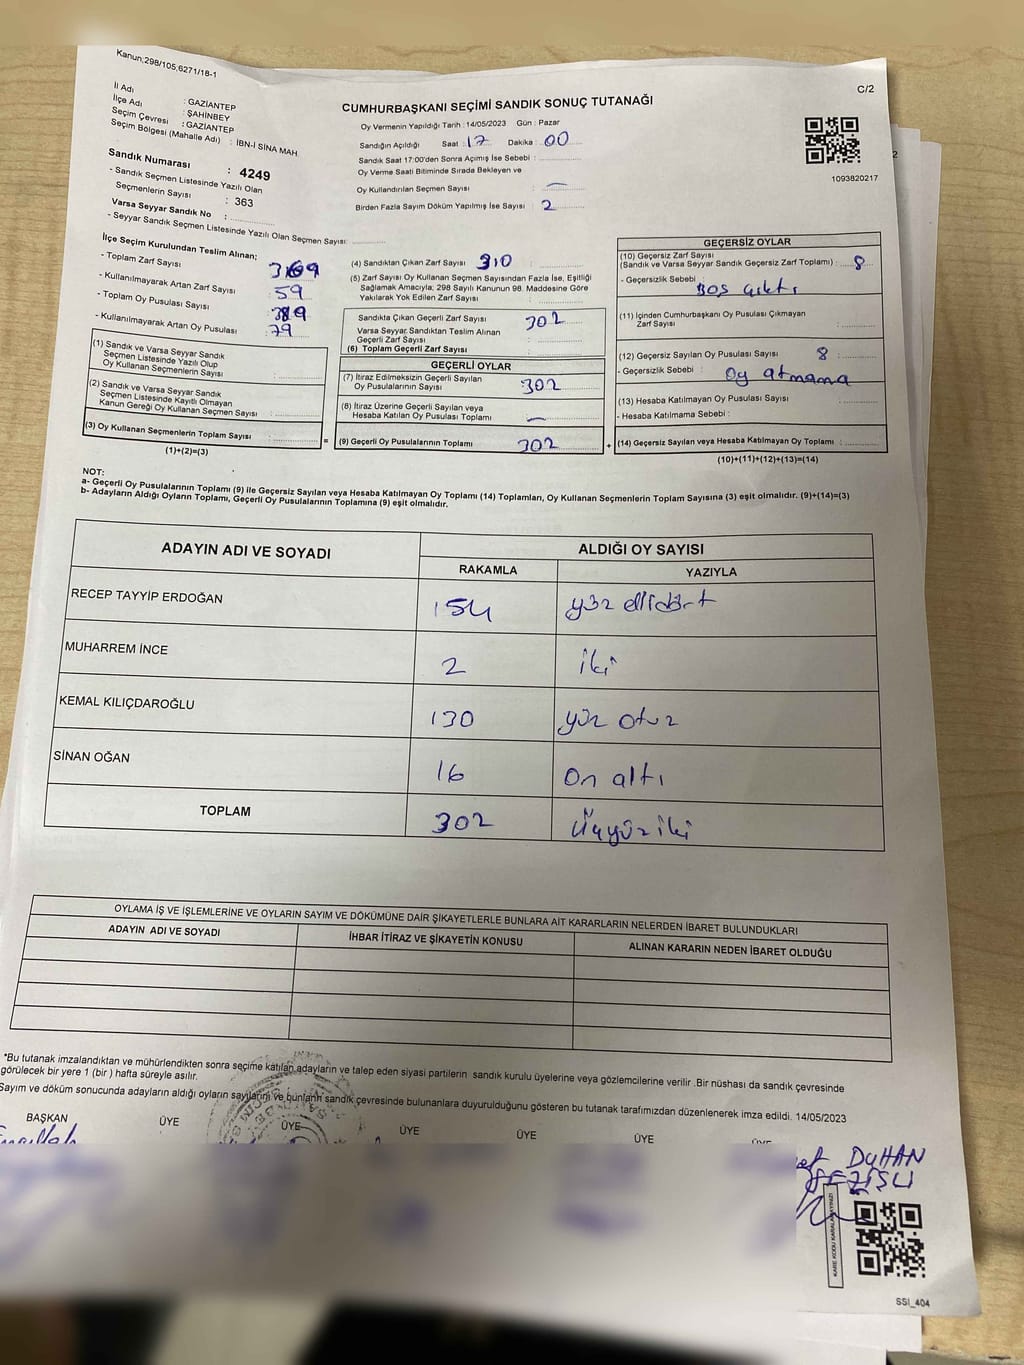 Kanun,298/105,6271/18-1
C/2
İl Adı : GAZİANTEP
İlçe Adı : ŞAHİNBEY
Seçim Çevresi : GAZİANTEP
Seçim Bölgesi (Mahalle Adı) : İBN-İ SİNA MAH
Sandık Numarası : 4249
- Sandık Seçmen Listesinde Yazılı Olan
Seçmenlerin Sayısı : 363
Varsa Seyyar Sandık No :
- Seyyar Sandık Seçmen Listesinde Yazılı Olan Seçmen Sayısı:
CUMHURBAŞKANI SEÇİMİ SANDIK SONUÇ TUTANAĞI
Oy Vermenin Yapıldığı Tarih : 14/05/2023 Gün : Pazar
Sandığın Açıldığı Saat : 17 Dakika : 00
Sandık Saat 17:00'den Sonra Açımış İse Sebebi :
Oy Verme Saati Bitiminde Sırada Bekleyen ve
Oy Kullandırılan Seçmen Sayısı : —
Birden Fazla Sayım Döküm Yapılmış İse Sayısı : 2
1093820217
2
İlçe Seçim Kurulundan Teslim Alınan;
- Toplam Zarf Sayısı 369
- Kullanılmayarak Artan Zarf Sayısı 59
- Toplam Oy Pusulası Sayısı 389
- Kullanılmayarak Artan Oy Pusulası 79
(1) Sandık ve Varsa Seyyar Sandık
Seçmen Listesinde Yazılı Olup
Oy Kullanan Seçmenlerin Sayısı :
(2) Sandık ve Varsa Seyyar Sandık
Seçmen Listesinde Kayıtlı Olmayan
Kanun Gereği Oy Kullanan Seçmen Sayısı :
(3) Oy Kullanan Seçmenlerin Toplam Sayısı :
(1)+(2)=(3)
=
(4) Sandıktan Çıkan Zarf Sayısı : 310
(5) Zarf Sayısı Oy Kullanan Seçmen Sayısından Fazla İse, Eşitliği
Sağlamak Amacıyla; 298 Sayılı Kanunun 98. Maddesine Göre
Yakılarak Yok Edilen Zarf Sayısı :
Sandıkta Çıkan Geçerli Zarf Sayısı : 302
Varsa Seyyar Sandıktan Teslim Alınan
Geçerli Zarf Sayısı :
(6) Toplam Geçerli Zarf Sayısı :
GEÇERLİ OYLAR
(7) İtiraz Edilmeksizin Geçerli Sayılan
Oy Pusulalarının Sayısı : 302
(8) İtiraz Üzerine Geçerli Sayılan veya
Hesaba Katılan Oy Pusulası Toplamı : —
(9) Geçerli Oy Pusulalarının Toplamı : 302
+
GEÇERSİZ OYLAR
(10) Geçersiz Zarf Sayısı
(Sandık ve Varsa Seyyar Sandık Geçersiz Zarf Toplamı) : 8
- Geçersizlik Sebebi : Boş çıktı
(11) İçinden Cumhurbaşkanı Oy Pusulası Çıkmayan
Zarf Sayısı :
(12) Geçersiz Sayılan Oy Pusulası Sayısı : 8
- Geçersizlik Sebebi : Oy atmama
(13) Hesaba Katılmayan Oy Pusulası Sayısı :
- Hesaba Katılmama Sebebi :
(14) Geçersiz Sayılan veya Hesaba Katılmayan Oy Toplamı :
(10)+(11)+(12)+(13)=(14)
NOT:
a- Geçerli Oy Pusulalarının Toplamı (9) ile Geçersiz Sayılan veya Hesaba Katılmayan Oy Toplamı (14) Toplamları, Oy Kullanan Seçmenlerin Toplam Sayısına (3) eşit olmalıdır. (9)+(14)=(3)
b- Adayların Aldığı Oyların Toplamı, Geçerli Oy Pusulalarının Toplamına (9) eşit olmalıdır.
ADAYIN ADI VE SOYADI ALDIĞI OY SAYISI
RAKAMLA YAZIYLA
RECEP TAYYİP ERDOĞAN 154 yüz ellidört
MUHARREM İNCE 2 iki
KEMAL KILIÇDAROĞLU 130 yüz otuz
SİNAN OĞAN 16 On altı
TOPLAM 302 Üçyüziki
OYLAMA İŞ VE İŞLEMLERİNE VE OYLARIN SAYIM VE DÖKÜMÜNE DAİR ŞİKAYETLERLE BUNLARA AİT KARARLARIN NELERDEN İBARET BULUNDUKLARI
ADAYIN ADI VE SOYADI İHBAR İTİRAZ VE ŞİKAYETİN KONUSU ALINAN KARARIN NEDEN İBARET OLDUĞU
*Bu tutanak imzalandıktan ve mühürlendikten sonra seçime katılan adayların ve talep eden siyasi partilerin sandık kurulu üyelerine veya gözlemcilerine verilir .Bir nüshası da sandık çevresinde
görülecek bir yere 1 (bir ) hafta süreyle asılır.
Sayım ve döküm sonucunda adayların aldığı oyların sayılarını ve bunların sandık çevresinde bulunanlara duyurulduğunu gösteren bu tutanak tarafımızdan düzenlenerek imza edildi. 14/05/2023
BAŞKAN ÜYE ÜYE ÜYE ÜYE ÜYE ÜYE
DUHAN
KARE KODU KARALAMAYINIZ!
SSI_404